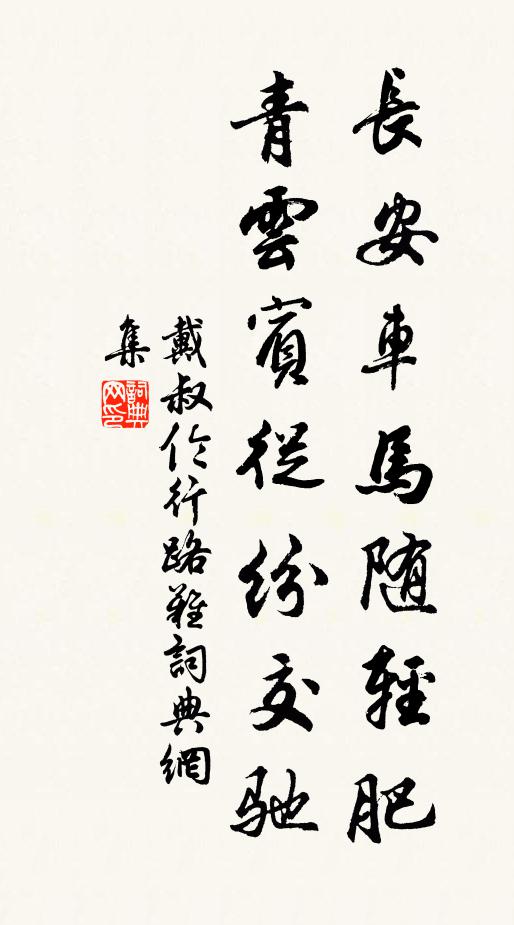 長安車馬随輕肥
青雲賓從紛交馳
戴叔伦行路難詞典網
集
詞典网印